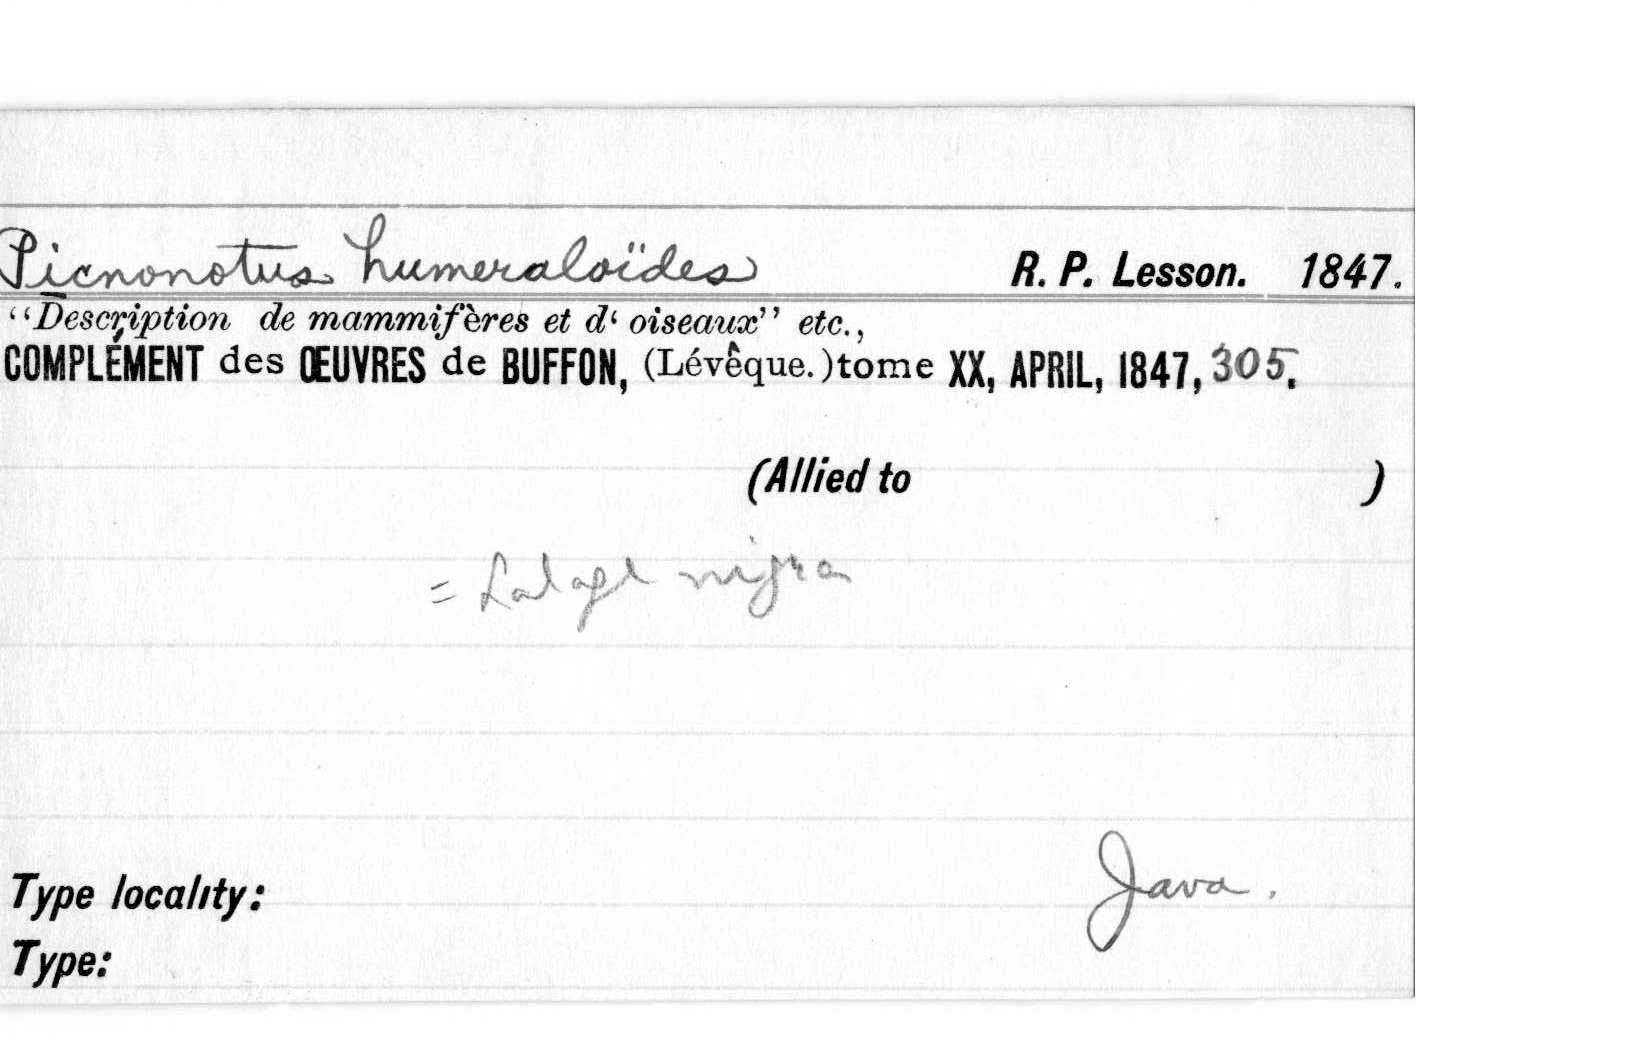 Picnonotus humeraloïdes R. P. Lesson. 1847.
“Description de mammifères et d‘ oiseaux” etc.,
COMPLÉMENT des ŒUVRES de BUFFON, (Lévêque.) tome XX, APRIL, 1847, 305.
(Allied to )
= Lalage nigra
Java.
Type locality:
Type: